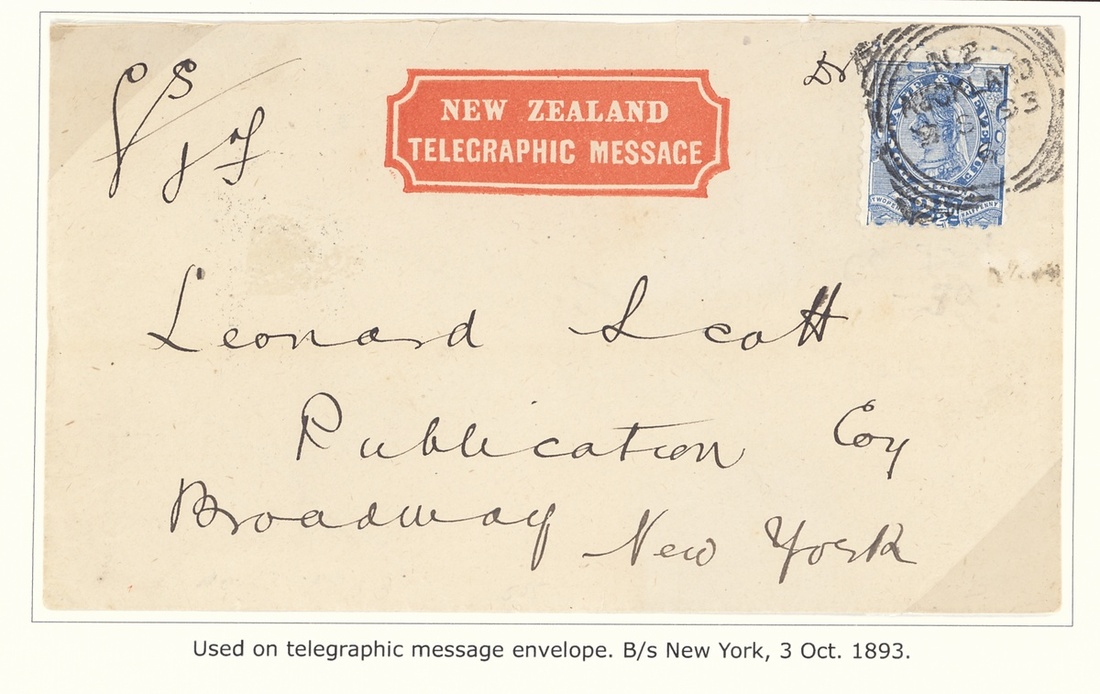 NEW ZEALAND
TELEGRAPHIC MESSAGE
N.Z
Leonard Scott
Publication Coy
Broadway New York
Used on telegraphic message envelope. B/s New York, 3 Oct. 1893.